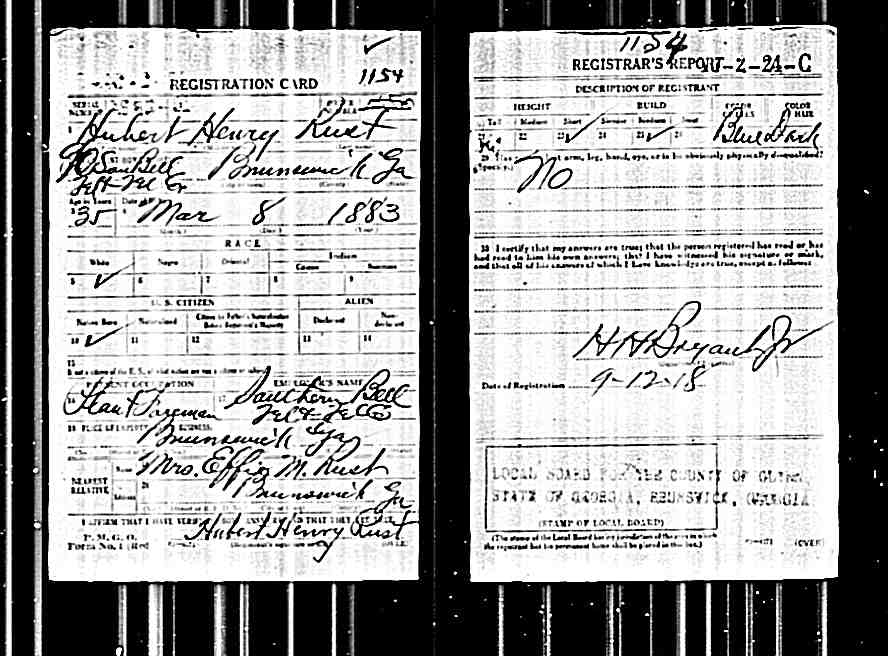 1154
REGISTRATION CARD
Hubert Henry Rust
So Bell Brunswick Ga
Tel + Tel Co
Age in Years
35 Mar 8 1883
RACE
White Negro Oriental Indian
5 6 7 8 9
U.S. CITIZEN ALIEN
Native Born Naturalized Declarant Non-declarant
10 11 12 13 14
15
PRESENT OCCUPATION EMPLOYER'S NAME
Plant Foreman Southern Bell
Tel + Tel Co
Brunswick Ga
Mrs. Effie M. Rust
NEAREST RELATIVE
Brunswick Ga
P. M. G. O.
Form No. 1 Hubert Henry Rust
1154
REGISTRAR'S REPORT
-2-24-C
DESCRIPTION OF REGISTRANT
HEIGHT BUILD COLOR OF EYES COLOR OF HAIR
Tall Medium Short Slender Medium Stout
22 23 24 25 26 Blue Dark
29 arm, leg, hand, eye, or is he obviously physically disqualified?
No
30 I certify that my answers are true; that the person registered has read or has
had read to him his own answers; that I have witnessed his signature or mark,
and that all of his answers of which I have knowledge are true, except as follows:
H H Bryant Jr
Date of Registration 9-12-18
LOCAL BOARD FOR THE COUNTY OF GLYNN,
STATE OF GEORGIA, BRUNSWICK, GEORGIA
(STAMP OF LOCAL BOARD)
(The stamp of the Local Board having jurisdiction of the area in which
the registrant has his permanent home shall be placed in this box.)
(OVER)